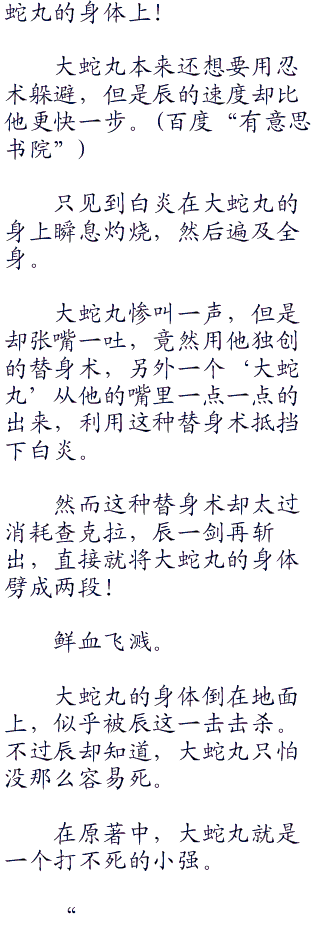 蛇丸的身体上！
大蛇丸本来还想要用忍
术躲避，但是辰的速度却比
他更快一步。(百度“有意思
书院”)
只见到白炎在大蛇丸的
身上瞬息灼烧，然后遍及全
身。
大蛇丸惨叫一声，但是
却张嘴一吐，竟然用他独创
的替身术，另外一个‘大蛇
丸’从他的嘴里一点一点的
出来，利用这种替身术抵挡
下白炎。
然而这种替身术却太过
消耗查克拉，辰一剑再斩
出，直接就将大蛇丸的身体
劈成两段！
鲜血飞溅。
大蛇丸的身体倒在地面
上，似乎被辰这一击击杀。
不过辰却知道，大蛇丸只怕
没那么容易死。
在原著中，大蛇丸就是
一个打不死的小强。
“